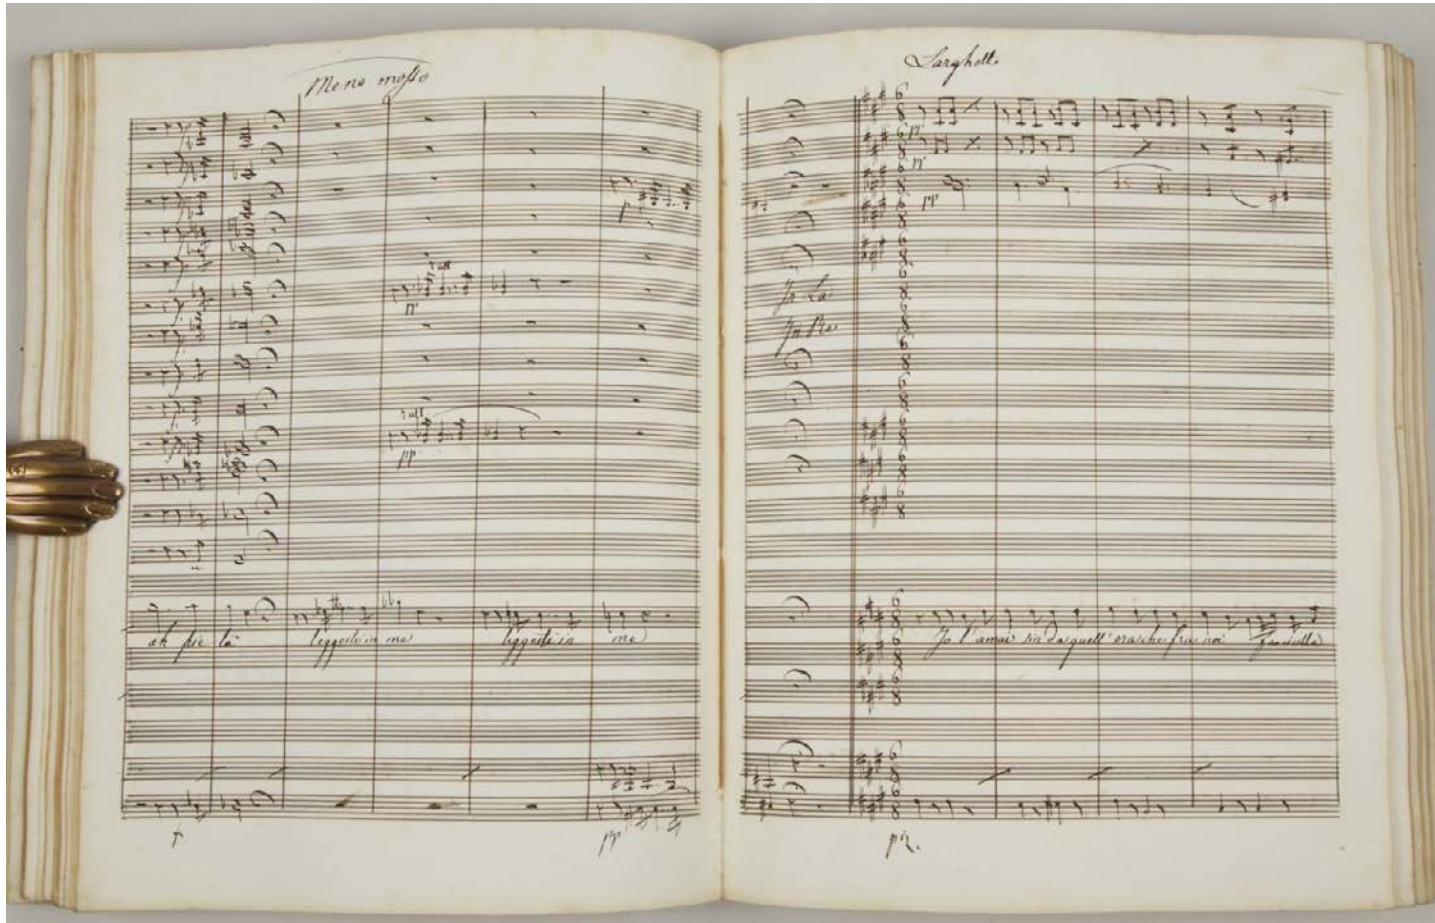 Meno mosso
rall
pp
p
rall
pp
ah pie tà leggeste in me leggeste in me
f
pp
Larghetto
pp
pp
pp
In La
In Re
Io l'amai sin da quell'ora che fra noi fanciulla